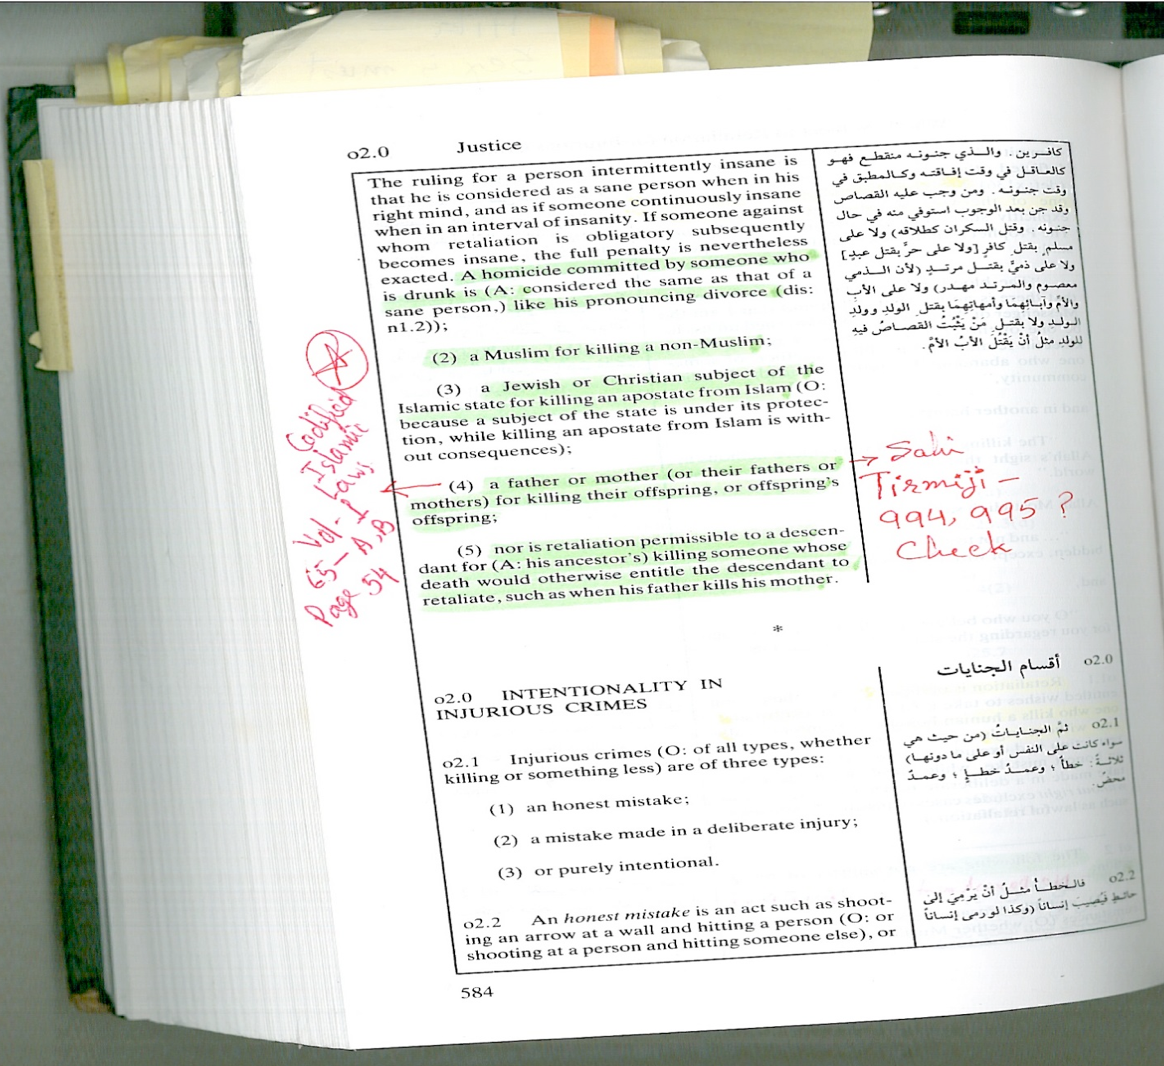 o2.0 Justice
The ruling for a person intermittently insane is
that he is considered as a sane person when in his
right mind, and as if someone continuously insane
when in an interval of insanity. If someone against
whom retaliation is obligatory subsequently
becomes insane, the full penalty is nevertheless
exacted. A homicide committed by someone who
is drunk is (A: considered the same as that of a
sane person,) like his pronouncing divorce (dis:
n1.2));
(2) a Muslim for killing a non-Muslim;
(3) a Jewish or Christian subject of the
Islamic state for killing an apostate from Islam (O:
because a subject of the state is under its protec-
tion, while killing an apostate from Islam is with-
out consequences);
(4) a father or mother (or their fathers or
mothers) for killing their offspring, or offspring's
offspring;
(5) nor is retaliation permissible to a descen-
dant for (A: his ancestor's) killing someone whose
death would otherwise entitle the descendant to
retaliate, such as when his father kills his mother.
*
o2.0 INTENTIONALITY IN
INJURIOUS CRIMES
o2.1 Injurious crimes (O: of all types, whether
killing or something less) are of three types:
(1) an honest mistake;
(2) a mistake made in a deliberate injury;
(3) or purely intentional.
o2.2 An honest mistake is an act such as shoot-
ing an arrow at a wall and hitting a person (O: or
shooting at a person and hitting someone else), or
584
كافرين. والذي جنونه منقطع فهو
كالعاقل في وقت إفاقته وكالمطبق في
وقت جنونه. ومن وجب عليه القصاص
وقد جن بعد الوجوب استوفي منه في حال
جنونه. وقتل السكران كطلاقه) ولا على
مسلم بقتل كافرٍ [ولا على حرٍّ بقتل عبدٍ]
ولا على ذميٍّ بقتل مرتدٍ (لأن الذمي
معصوم والمرتد مهدر) ولا على الأبِ
والأمِّ وآبائِهِمَا وأمهاتِهِمَا بقتلِ الولدِ وولدِ
الولدِ ولا بقتلِ مَنْ يَثْبُتُ القصاصُ فيهِ
للولدِ مثلُ أنْ يَقْتُلَ الأبُ الأمَّ.
o2.0 أقسام الجنايات
o2.1 ثمَّ الجناياتُ (من حيث هي
سواء كانت على النفس أو على ما دونها)
ثلاثةٌ: خطأٌ؛ وعمدُ خطإٍ؛ وعمدٌ
محضٌ.
o2.2 فالخطأُ مثلُ أنْ يَرْمِيَ إلى
حائطٍ فَيُصِيبَ إنساناً (وكذا لو رمى إنساناً
Codified
Islamic
Laws
Vol-I
65-A,B
Page 54
→ Sahi
Tirmiji-
994, 995?
Check